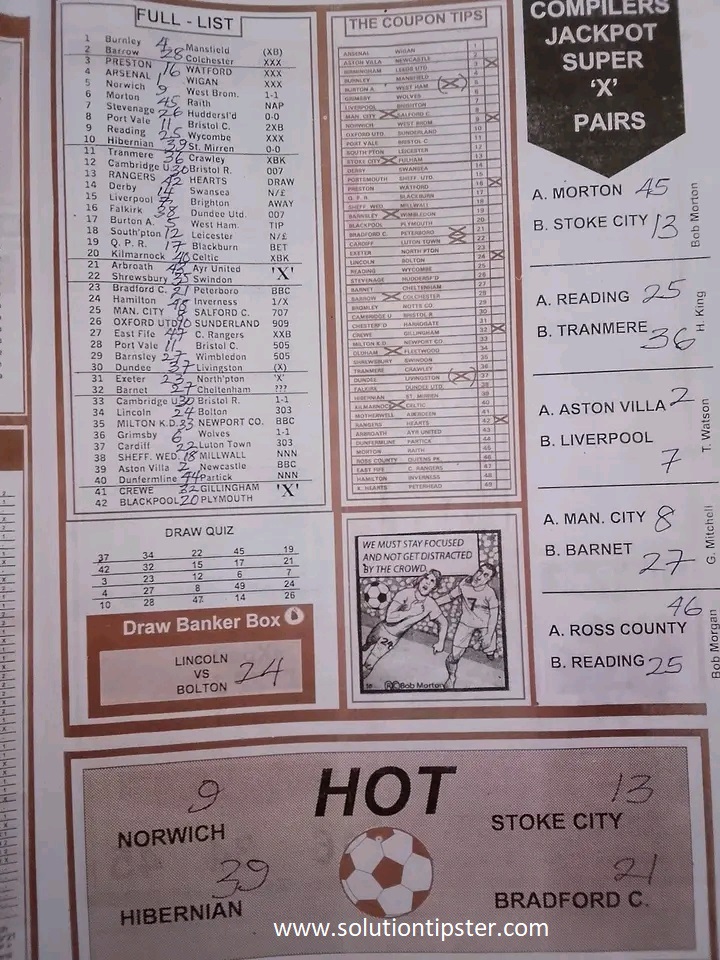 FULL - LIST
1 Burnley 4 Mansfield (XB)
2 Barrow 28 Colchester XXX
3 PRESTON 16 WATFORD XXX
4 ARSENAL WIGAN XXX
5 Norwich 9 West Brom. 1-1
6 Morton 45 Raith NAP
7 Stevenage 26 Huddersl'd 0-0
8 Port Vale 11 Bristol C. 2XB
9 Reading 25 Wycombe XXX
10 Hibernian 39 St. Mirren 0-0
11 Tranmere 36 Crawley XBK
12 Cambridge U 30 Bristol R. 007
13 RANGERS 42 HEARTS DRAW
14 Derby 14 Swansea N/£
15 Liverpool 7 Brighton AWAY
16 Falkirk 38 Dundee Utd. 007
17 Burton A. 5 West Ham. TIP
18 South'pton 12 Leicester N/£
19 Q. P. R. 17 Blackburn BET
20 Kilmarnock 40 Celtic XBK
21 Arbroath 43 Ayr United 'X'
22 Shrewsbury 35 Swindon
23 Bradford C. 21 Peterboro BBC
24 Hamilton 48 Inverness 1/X
25 MAN. CITY 8 SALFORD C. 707
26 OXFORD UTD 10 SUNDERLAND 909
27 East Fife 47 C. Rangers XXB
28 Port Vale 11 Bristol C. 505
29 Barnsley Wimbledon 505
30 Dundee 37 Livingston (X)
31 Exeter 23 North'pton 'X'
32 Barnet 27 Cheltenham ???
33 Cambridge U 30 Bristol R. 1-1
34 Lincoln 24 Bolton 303
35 MILTON K.D. 33 NEWPORT CO. BBC
36 Grimsby 6 Wolves 1-1
37 Cardiff 22 Luton Town 303
38 SHEFF. WED. 18 MILLWALL NNN
39 Aston Villa 2 Newcastle BBC
40 Dunfermline 44 Partick NNN
41 CREWE 32 GILLINGHAM 'X'
42 BLACKPOOL 20 PLYMOUTH
DRAW QUIZ
37 34 22 45 19
42 32 15 17 21
3 23 12 6 7
4 27 8 49 24
10 28 47 14 26
Draw Banker Box
LINCOLN
VS
BOLTON
24
THE COUPON TIPS
ARSENAL WIGAN 1
ASTON VILLA NEWCASTLE 2
BIRMINGHAM LEEDS UTD 3
BURNLEY MANSFIELD 4
BURTON A WEST HAM 5
GRIMSBY WOLVES 6
LIVERPOOL BRIGHTON 7
MAN. CITY SALFORD C. 8
NORWICH WEST BROM 9
OXFORD UTD SUNDERLAND 10
PORT VALE BRISTOL C 11
SOUTH PTON LEICESTER 12
STOKE CITY FULHAM 13
DERBY SWANSEA 14
PORTSMOUTH SHEFF UTD. 15
PRESTON WATFORD 16
Q. P. R. BLACKBURN 17
SHEF. WED MILLWALL 18
BARNSLEY WIMBLEDON 19
BLACKPOOL PLYMOUTH 20
BRADFORD C PETERBORO 21
CARDIFF LUTON TOWN 22
EXETER NORTH PTON 23
LINCOLN BOLTON 24
READING WYCOMBE 25
STEVENAGE HUDDERSF'D 26
BARNET CHELTENHAM 27
BARROW COLCHESTER 28
BROMLEY NOTTS CO 29
CAMBRIDGE U BRISTOL R 30
CHESTERF'D HARROGATE 31
CREWE GILLINGHAM 32
MILTON K D NEWPORT CO 33
OLDHAM FLEETWOOD 34
SHREWSBURY SWINDON 35
TRANMERE CRAWLEY 36
DUNDEE LIVINGSTON 37
FALKIRK DUNDEE UTD 38
HIBERNIAN ST. MIRREN 39
KILMARNOCK CELTIC 40
MOTHERWELL ABERDEEN 41
RANGERS HEARTS 42
ARBROATH AYR UNITED 43
DUNFERMLINE PARTICK 44
MORTON RAITH 45
ROSS COUNTY QUEENS PK 46
EAST FIFE C. RANGERS 47
HAMILTON INVERNESS 48
K. HEARTS PETERHEAD 49
WE MUST STAY FOCUSED
AND NOT GET DISTRACTED
BY THE CROWD.
7
24
©Bob Morton
COMPILERS
JACKPOT
SUPER
'X'
PAIRS
A. MORTON 45
B. STOKE CITY 13
Bob Morton
A. READING 25
B. TRANMERE 36
H. King
A. ASTON VILLA 2
B. LIVERPOOL
7
T. Watson
A. MAN. CITY 8
B. BARNET 27
G. Mitchell
46
A. ROSS COUNTY
B. READING 25
Bob Morgan
HOT
9
NORWICH
13
STOKE CITY
39
HIBERNIAN
21
BRADFORD C.
www.solutiontipster.com